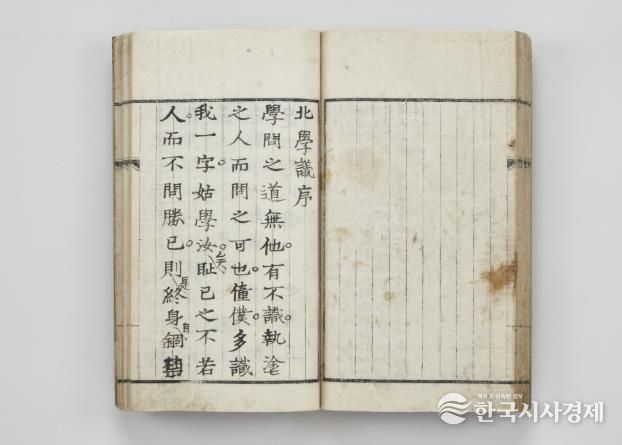 北學議序
學問之道無他有不識執塗
之人而問之可也僮僕多識
我一字姑學汝矣恥己之不若
人而不問勝己則是終身自錮
한국시사경제